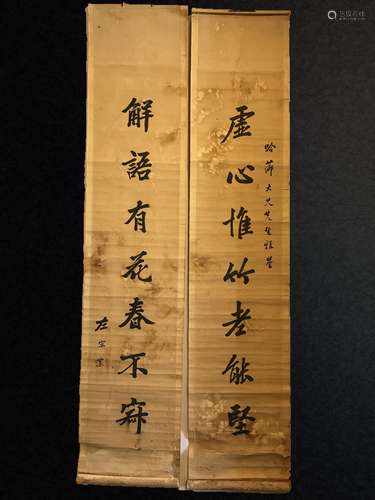 虛心惟竹老能堅
大兄先生雅鑒
解語有花春不寂
左宗棠